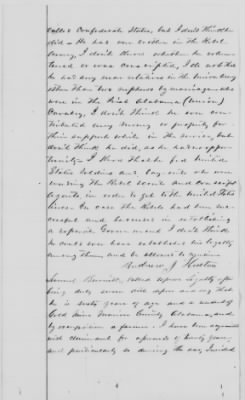 called Confederate States, but I don't think he
did. He has one brother in the Rebel
Army, I don't know whether he volun
teered or was conscripted, I do not think
he has any near relatives in the Union Army
other than two nephews by marriage who
were in the First Alabama (Union)
Cavalry, I don't think he ever con
tributed any money or property for
their support while in the service, but
don't think he did, as he had no oppor
tunity. I think that he fed United
States Soldiers and Citizens who were
evading the Rebel Scouts and Conscript
agents, in order to get to the United States
lines. In case the Rebels had been suc
cessful and succeeded in establishing
a separate Government I don't think
he could ever have established his loyalty
among them, and be allowed to remain
Andrew J. Huston
Samuel called upon Loyalty after
being duly sworn did depose and say that
he is sixty years of age and a resident of
Gold Mine Marion County Alabama, and
by occupation a farmer. I have been acquainted
with claimant for upwards of twenty years,
and particularly so during the war, I resided